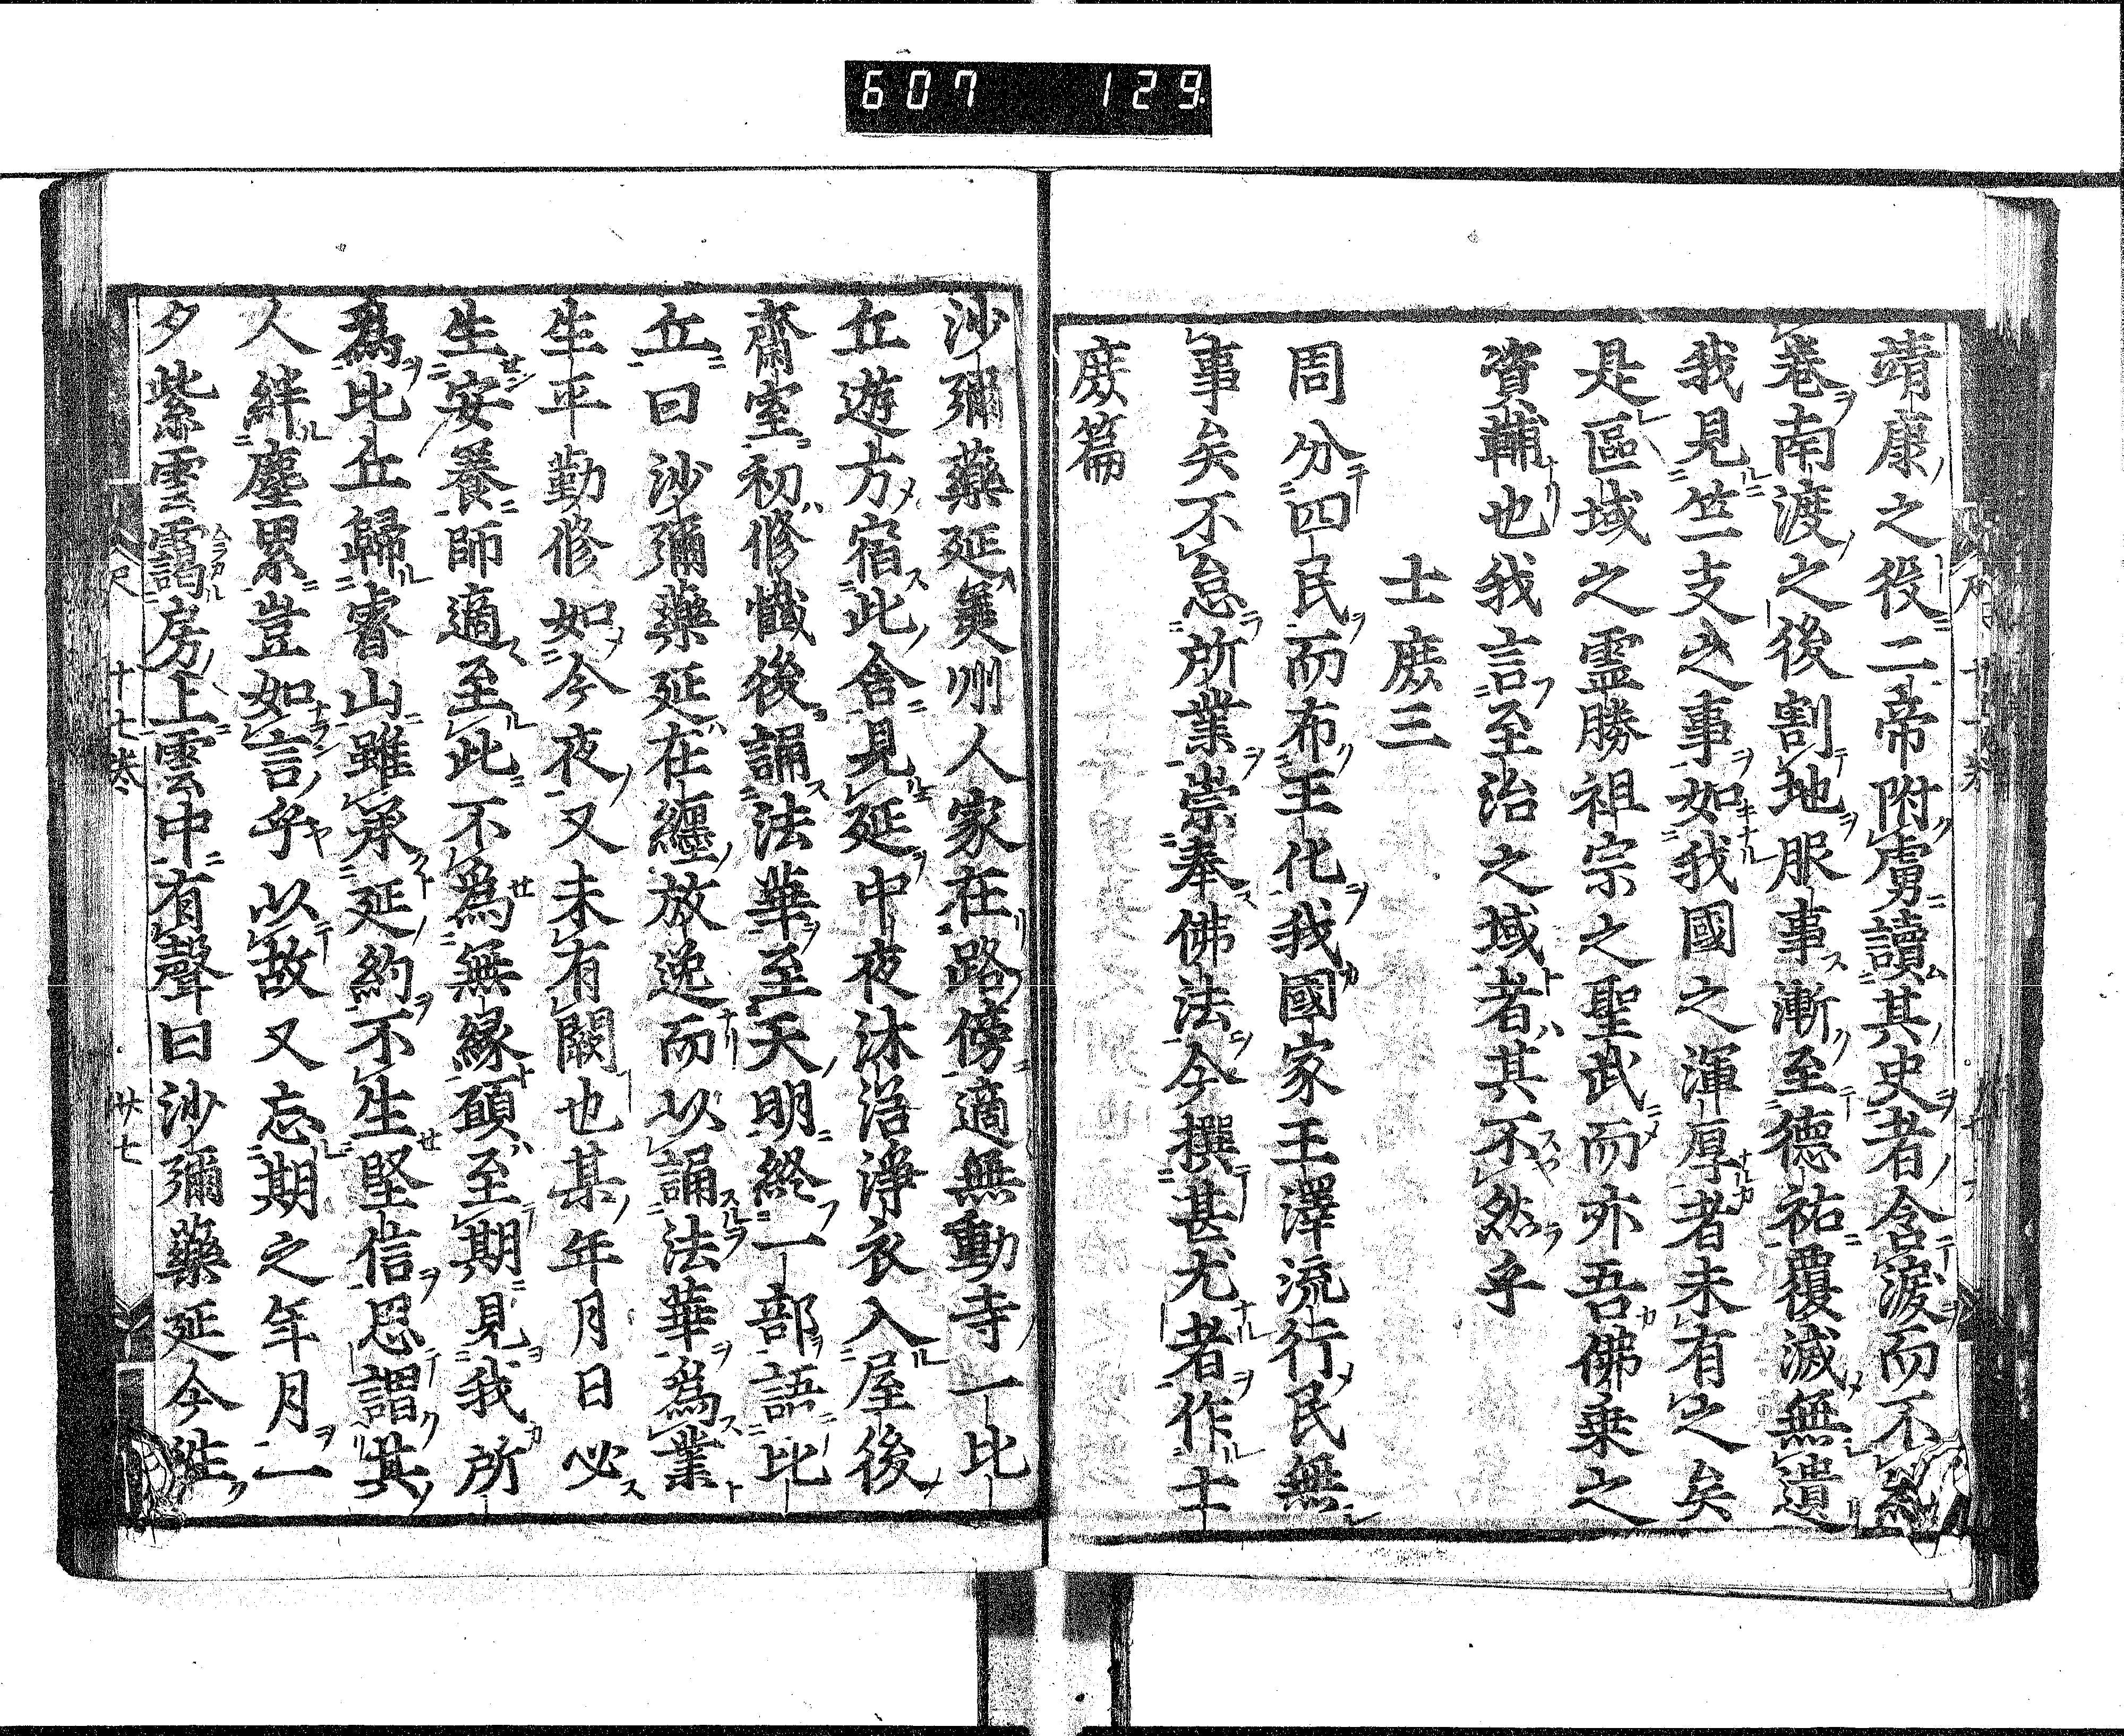 607 129
靖康之役二帝附虜讀其史者含淚而不終
巻南渡之後割地服事漸至德祐覆滅無遺
我見竺支之事如我國之渾厚者未有之矣
是區域之霊勝祖宗之聖武而亦吾佛乗之
資輔也我言至治之域者其不然乎
士庶三
周分四民而布王化我國家王澤流行民無
事矣不怠所業崇奉佛法今撰甚尤者作士
庶篇
沙彌藥延羙州人家在路傍適無動寺一比
丘遊方宿此舎見延中夜沐浴淨衣入屋後
齋室初修懺後誦法華至天明終一部語比
丘曰沙彌藥延在纏放逸而以誦法華爲業
生平勤修如今夜又未有闕也某年月日必
生安養師適至此不爲無縁頋至期見我所
爲比丘歸睿山雖承延約不生堅信思謂其
人絆塵累豈如言乎以故又忘期之年月一
夕紫雲靄房上雲中有聲曰沙彌藥延今徃
十七巻
廿七